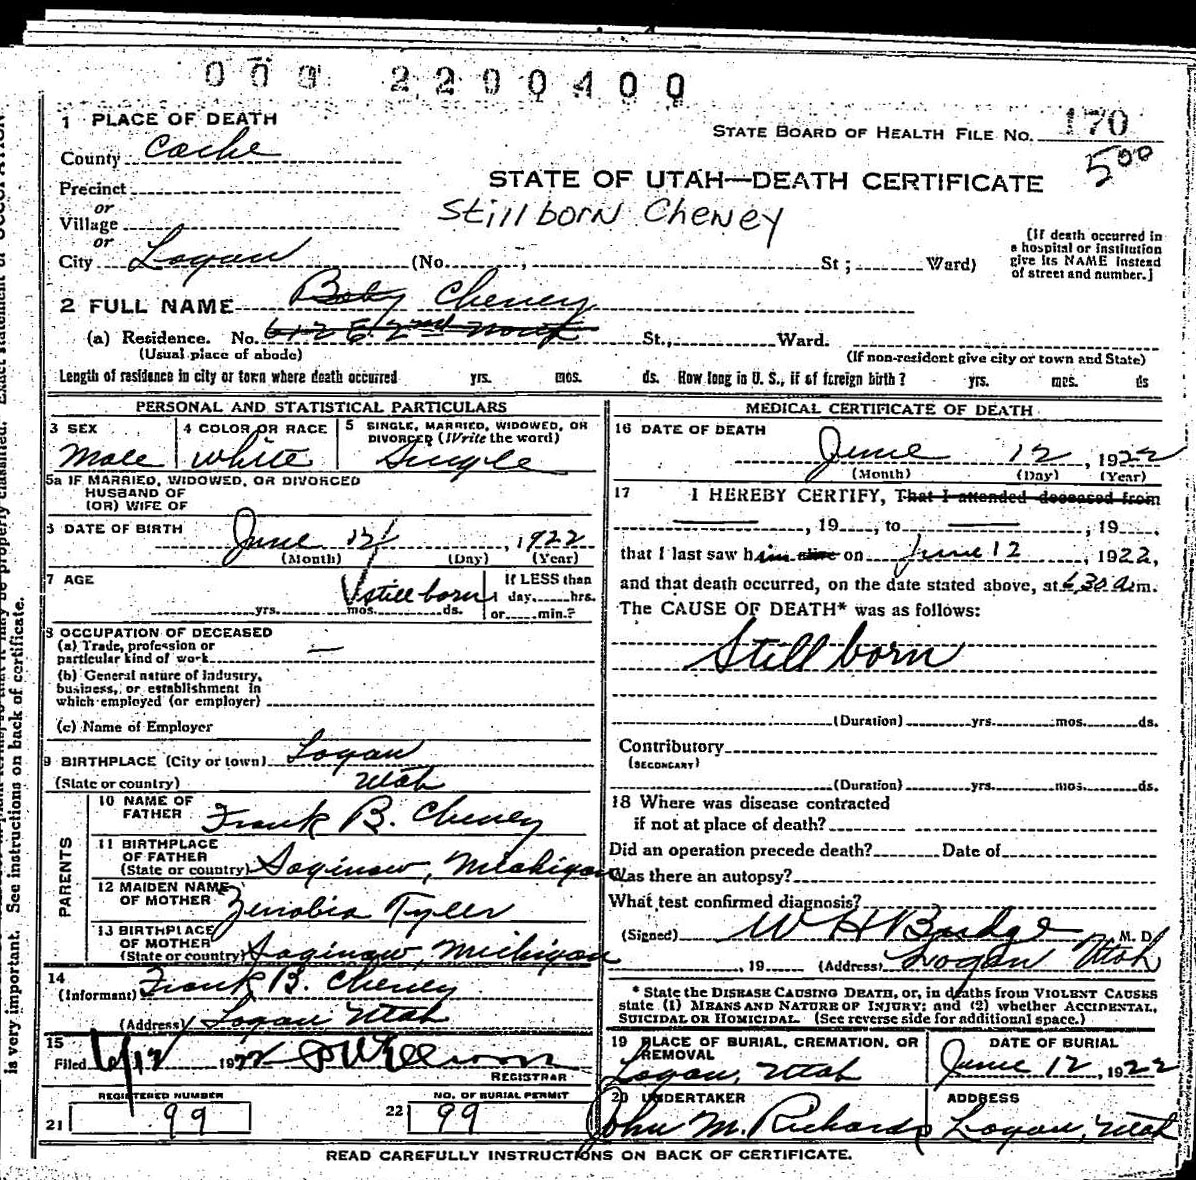 000 2200400
1 PLACE OF DEATH
STATE BOARD OF HEALTH FILE NO. 170
County Cache
500
Precinct
STATE OF UTAH—DEATH CERTIFICATE
or
Stillborn Cheney
Village
or
City Logan (No. , St ; Ward)
(If death occurred in
a hospital or institution
give its NAME instead
of street and number.]
2 FULL NAME Baby Cheney
(a) Residence. No. 612 E 2nd North St., Ward.
(Usual place of abode)
(If non-resident give city or town and State)
Length of residence in city or town where death occurred yrs. mos. ds. How long in U. S., if of foreign birth? yrs. mos. ds
PERSONAL AND STATISTICAL PARTICULARS
3 SEX
Male
4 COLOR OR RACE
White
5 SINGLE, MARRIED, WIDOWED, OR
DIVORCED (Write the word)
Single
5a IF MARRIED, WIDOWED, OR DIVORCED
HUSBAND OF
(OR) WIFE OF
6 DATE OF BIRTH
June 12 , 1922
(Month) (Day) (Year)
7 AGE
Stillborn
yrs. mos. ds.
If LESS than
1 day, hrs.
or min.?
8 OCCUPATION OF DECEASED
(a) Trade, profession or
particular kind of work —
(b) General nature of industry,
business, or establishment in
which employed (or employer)
(c) Name of Employer
9 BIRTHPLACE (City or town) Logan
(State or country) Utah
PARENTS
10 NAME OF
FATHER Frank B. Cheney
11 BIRTHPLACE
OF FATHER
(State or country) Saginaw, Michigan
12 MAIDEN NAME
OF MOTHER Zenobia Tyler
13 BIRTHPLACE
OF MOTHER
(State or country) Saginaw, Michigan
14
(Informant) Frank B. Cheney
(Address) Logan Utah
15
Filed 6/12 1922
REGISTRAR
REGISTERED NUMBER
21 99
NO. OF BURIAL PERMIT
22 99
MEDICAL CERTIFICATE OF DEATH
16 DATE OF DEATH
June 12 , 1922
(Month) (Day) (Year)
17 I HEREBY CERTIFY, That I attended deceased from
, 19 , to , 19 ,
that I last saw him alive on June 12 , 1922,
and that death occurred, on the date stated above, at 6,30 A.m.
The CAUSE OF DEATH* was as follows:
Still born
(Duration) yrs. mos. ds.
Contributory
(SECONDARY)
(Duration) yrs. mos. ds.
18 Where was disease contracted
if not at place of death?
Did an operation precede death? Date of
Was there an autopsy?
What test confirmed diagnosis?
(Signed) W H Budge M. D.
, 19 (Address) Logan Utah
* State the DISEASE CAUSING DEATH, or, in deaths from VIOLENT CAUSES
state (1) MEANS AND NATURE OF INJURY; and (2) whether ACCIDENTAL,
SUICIDAL OR HOMICIDAL. (See reverse side for additional space.)
19 PLACE OF BURIAL, CREMATION, OR
REMOVAL
Logan, Utah
DATE OF BURIAL
June 12, 1922
20 UNDERTAKER
John M. Richards
ADDRESS
Logan, Utah
READ CAREFULLY INSTRUCTIONS ON BACK OF CERTIFICATE.
is very important. See instructions on back of certificate.